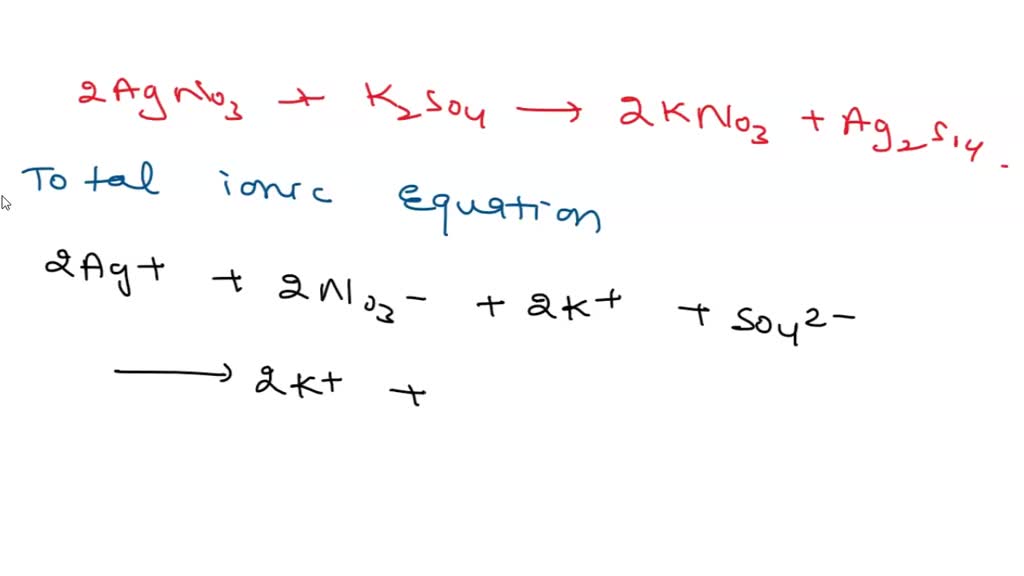 2AgNO3 + K2SO4 → 2KNO3 + Ag2S14.
Total ionic Equation
2Ag+ + 2NO3- + 2K+ + SO4 2-
→ 2K+ +